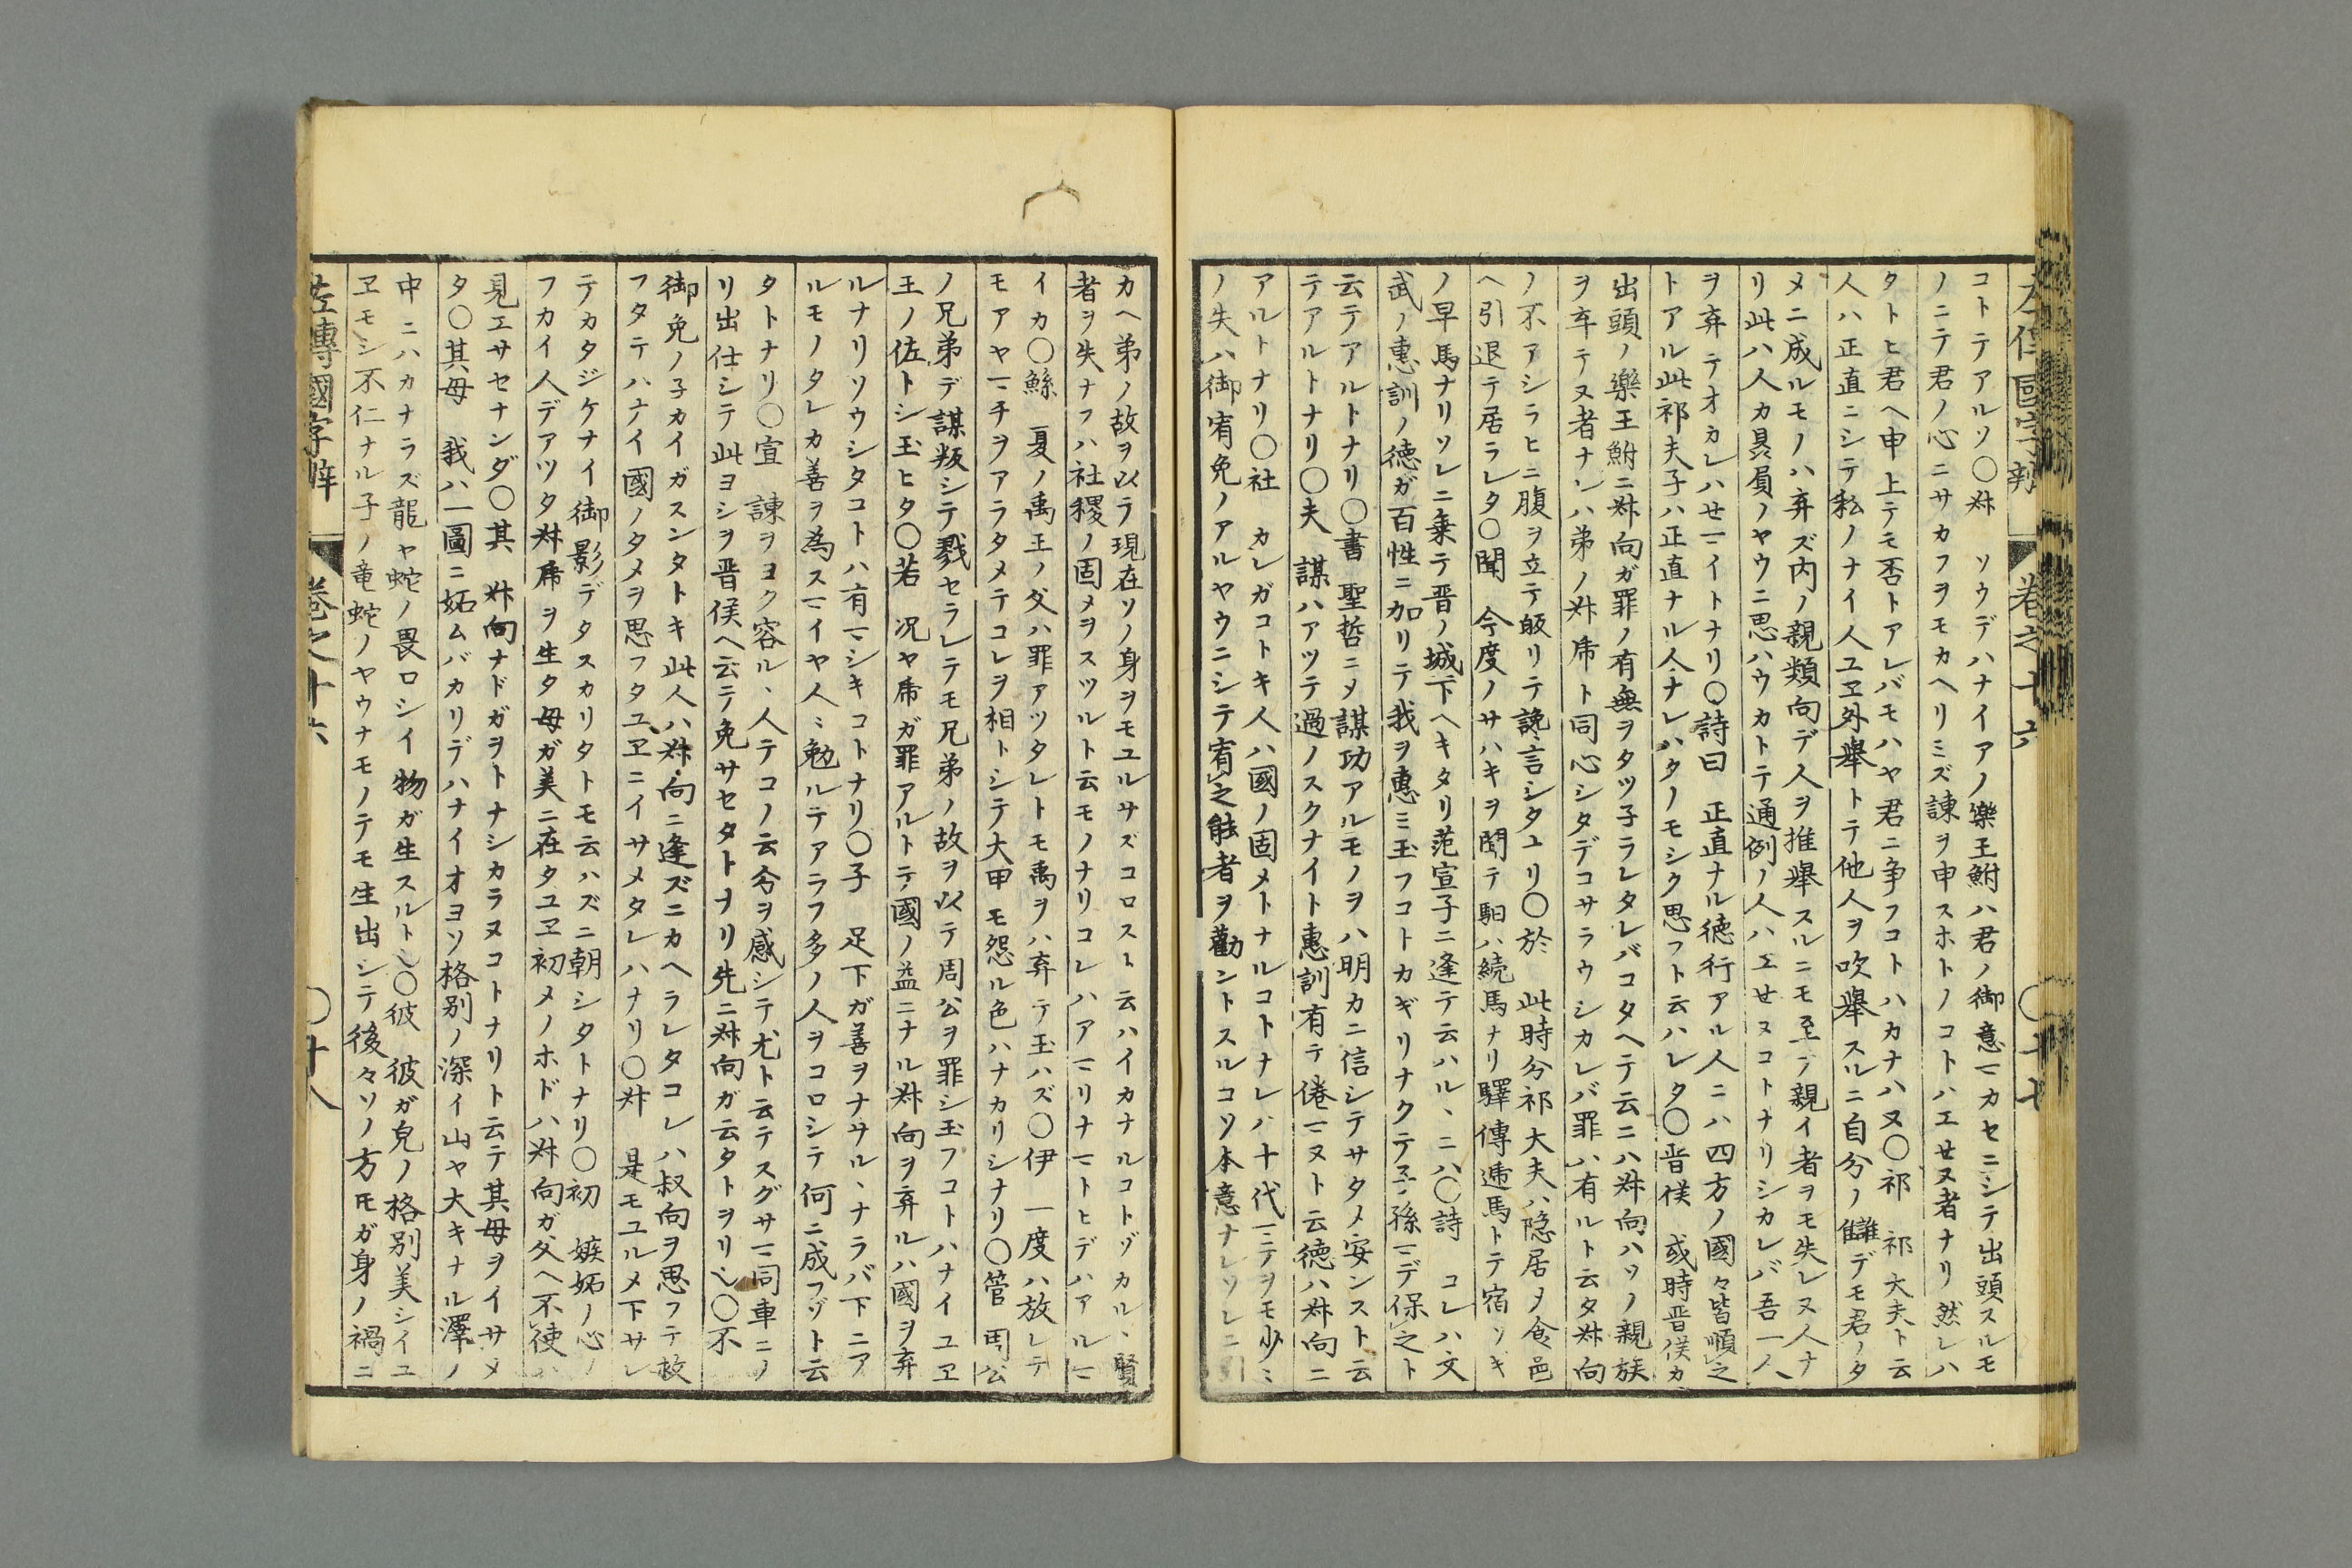 左傳國字辯 卷之十六 〇十七
コトテアルソ〇叔 ソウデハナイアノ樂王鮒ハ君ノ御意ニカセニシテ出頭スルモ
ノニテ君ノ心ニサカフヲモカヘリミズ諌ヲ申スホトノコトハエセヌ者ナリ然レハ
タトヒ君ヘ申上テモ否トアレバモハヤ君ニ争フコトハカナハヌ〇祁 祁大夫ト云
人ハ正直ニシテ私ノナイ人ユヱ外舉トテ他人ヲ吹舉スルニ自分ノ讎デモ君ノタ
メニ成ルモノハ弃ズ内ノ親類向デ人ヲ推舉スルニモ至テ親イ者ヲモ失レヌ人ナ
リ此ハ人カ㒵屓ノヤウニ思ハウカトテ通例ノ人ハエセヌコトナリシカレバ吾一人
ヲ弃テオカレハセマイトナリ〇詩曰 正直ナル徳行アル人ニハ四方ノ國々皆順之
トアル此祁夫子ハ正直ナル人ナレハタノモシク思フト云ハレタ〇晋侯 或時晋侯カ
出頭ノ樂王鮒ニ叔向ガ罪ノ有無ヲタツ子ラレタレバコタヘテ云ニハ叔向ハソノ親族
ヲ弃テヌ者ナレハ弟ノ叔乕ト同心シタデコサラウシカレバ罪ハ有ルト云タ叔向
ノ不アシラヒニ腹ヲ立テ皈リテ讒言シタユリ〇於 此時分祁大夫ハ隐居ヲ食邑
ヘ引退テ居ラレタ〇聞 今度ノサハキヲ聞テ馹ハ続馬ナリ驛傳逓馬トテ宿ツキ
ノ早馬ナリソレニ乗テ晋ノ城下ヘキタリ范宣子ニ逢テ云ハル、ニハ〇詩 コレハ文
武ノ惠訓ノ徳ガ百性ニ加リテ我ヲ惠ミ玉フコトカギリナクテ子孫マデ保之ト
云テアルトナリ〇書 聖哲ニメ謀功アルモノヲハ明カニ信シテサタメ安ンスト云
テアルトナリ〇夫 謀ハアツテ過ノスクナイト惠訓有テ倦マヌト云徳ハ叔向ニ
アルトナリ〇社 カレガコトキ人ハ國ノ固メトナルコトナレハ十代マテヲモ少ミ
ノ失ハ御宥免ノアルヤウニシテ宥之能者ヲ勸ントスルコソ本意ナレソレニ引
カヘ弟ノ故ヲ以テ現在ソノ身ヲモユルサズコロスト云ハイカナルコトゾカル、賢
者ヲ失ナフハ社稷ノ固メヲスツルト云モノナリコレハアマリナマトヒデハアルマ
イカ〇鯀 夏ノ禹王ノ父ハ罪アツタレトモ禹ヲハ弃テ玉ハズ〇伊 一度ハ放レテ
モアヤマチヲアラタメテコレヲ相トシテ大甲モ怨ル色ハナカリシナリ〇管 周公
ノ兄弟デ謀叛シテ戮セラレテモ兄弟ノ故ヲ以テ周公ヲ罪シ玉フコトハナイユヱ
王ノ佐トシ玉ヒタ〇若 况ヤ乕ガ罪アルトテ國ノ益ニナル叔向ヲ弃ルハ國ヲ弃
ルナリソウシタコトハ有マシキコトナリ〇子 足下ガ善ヲナサル、ナラバ下ニア
ルモノタレカ善ヲ為スマイヤ人ミ勉ルテアラフ多ノ人ヲコロシテ何ニ成フゾト云
タトナリ〇宣 諌ヲヨク容ル、人テコノ云分ヲ感シテ尤ト云テスグサマ同車ニノ
リ出仕シテ此ヨシヲ晋侯ヘ云テ免サセタトナリ先ニ叔向ガ云タトヲリ也〇不
御免ノ子カイガスンタトキ此人ハ叔向ニ逢ズニカヘラレタコレハ叔向ヲ思フテ救
フタテハナイ國ノタメヲ思フタユヱニイサメタレハナリ〇叔 是モユルメ下サレ
テカタジケナイ御影デタスカリタトモ云ハズニ朝シタトナリ〇初 嫉妬ノ心ノ
フカイ人デアツタ叔乕ヲ生タ母ガ美ニ在タユヱ初メノホドハ叔向ガ父ヘ不使ハ
見エサセナンダ〇其 叔向ナドガヲトナシカラヌコトナリト云テ其母ヲイサメ
タ〇其母 我ハ一圖ニ妬ムバカリデハナイオヨソ格别ノ深イ山ヤ大キナル澤ノ
中ニハカナラズ龍ヤ蛇ノ畏ロシイ物ガ生スルト也〇彼 彼ガ皃ノ格别美シイユ
ヱモシ不仁ナル子ノ竜蛇ノヤウナモノテモ生出シテ後々ソノ方𪜈ガ身ノ禍ニ
左傳國字辯 卷之十六 〇十八